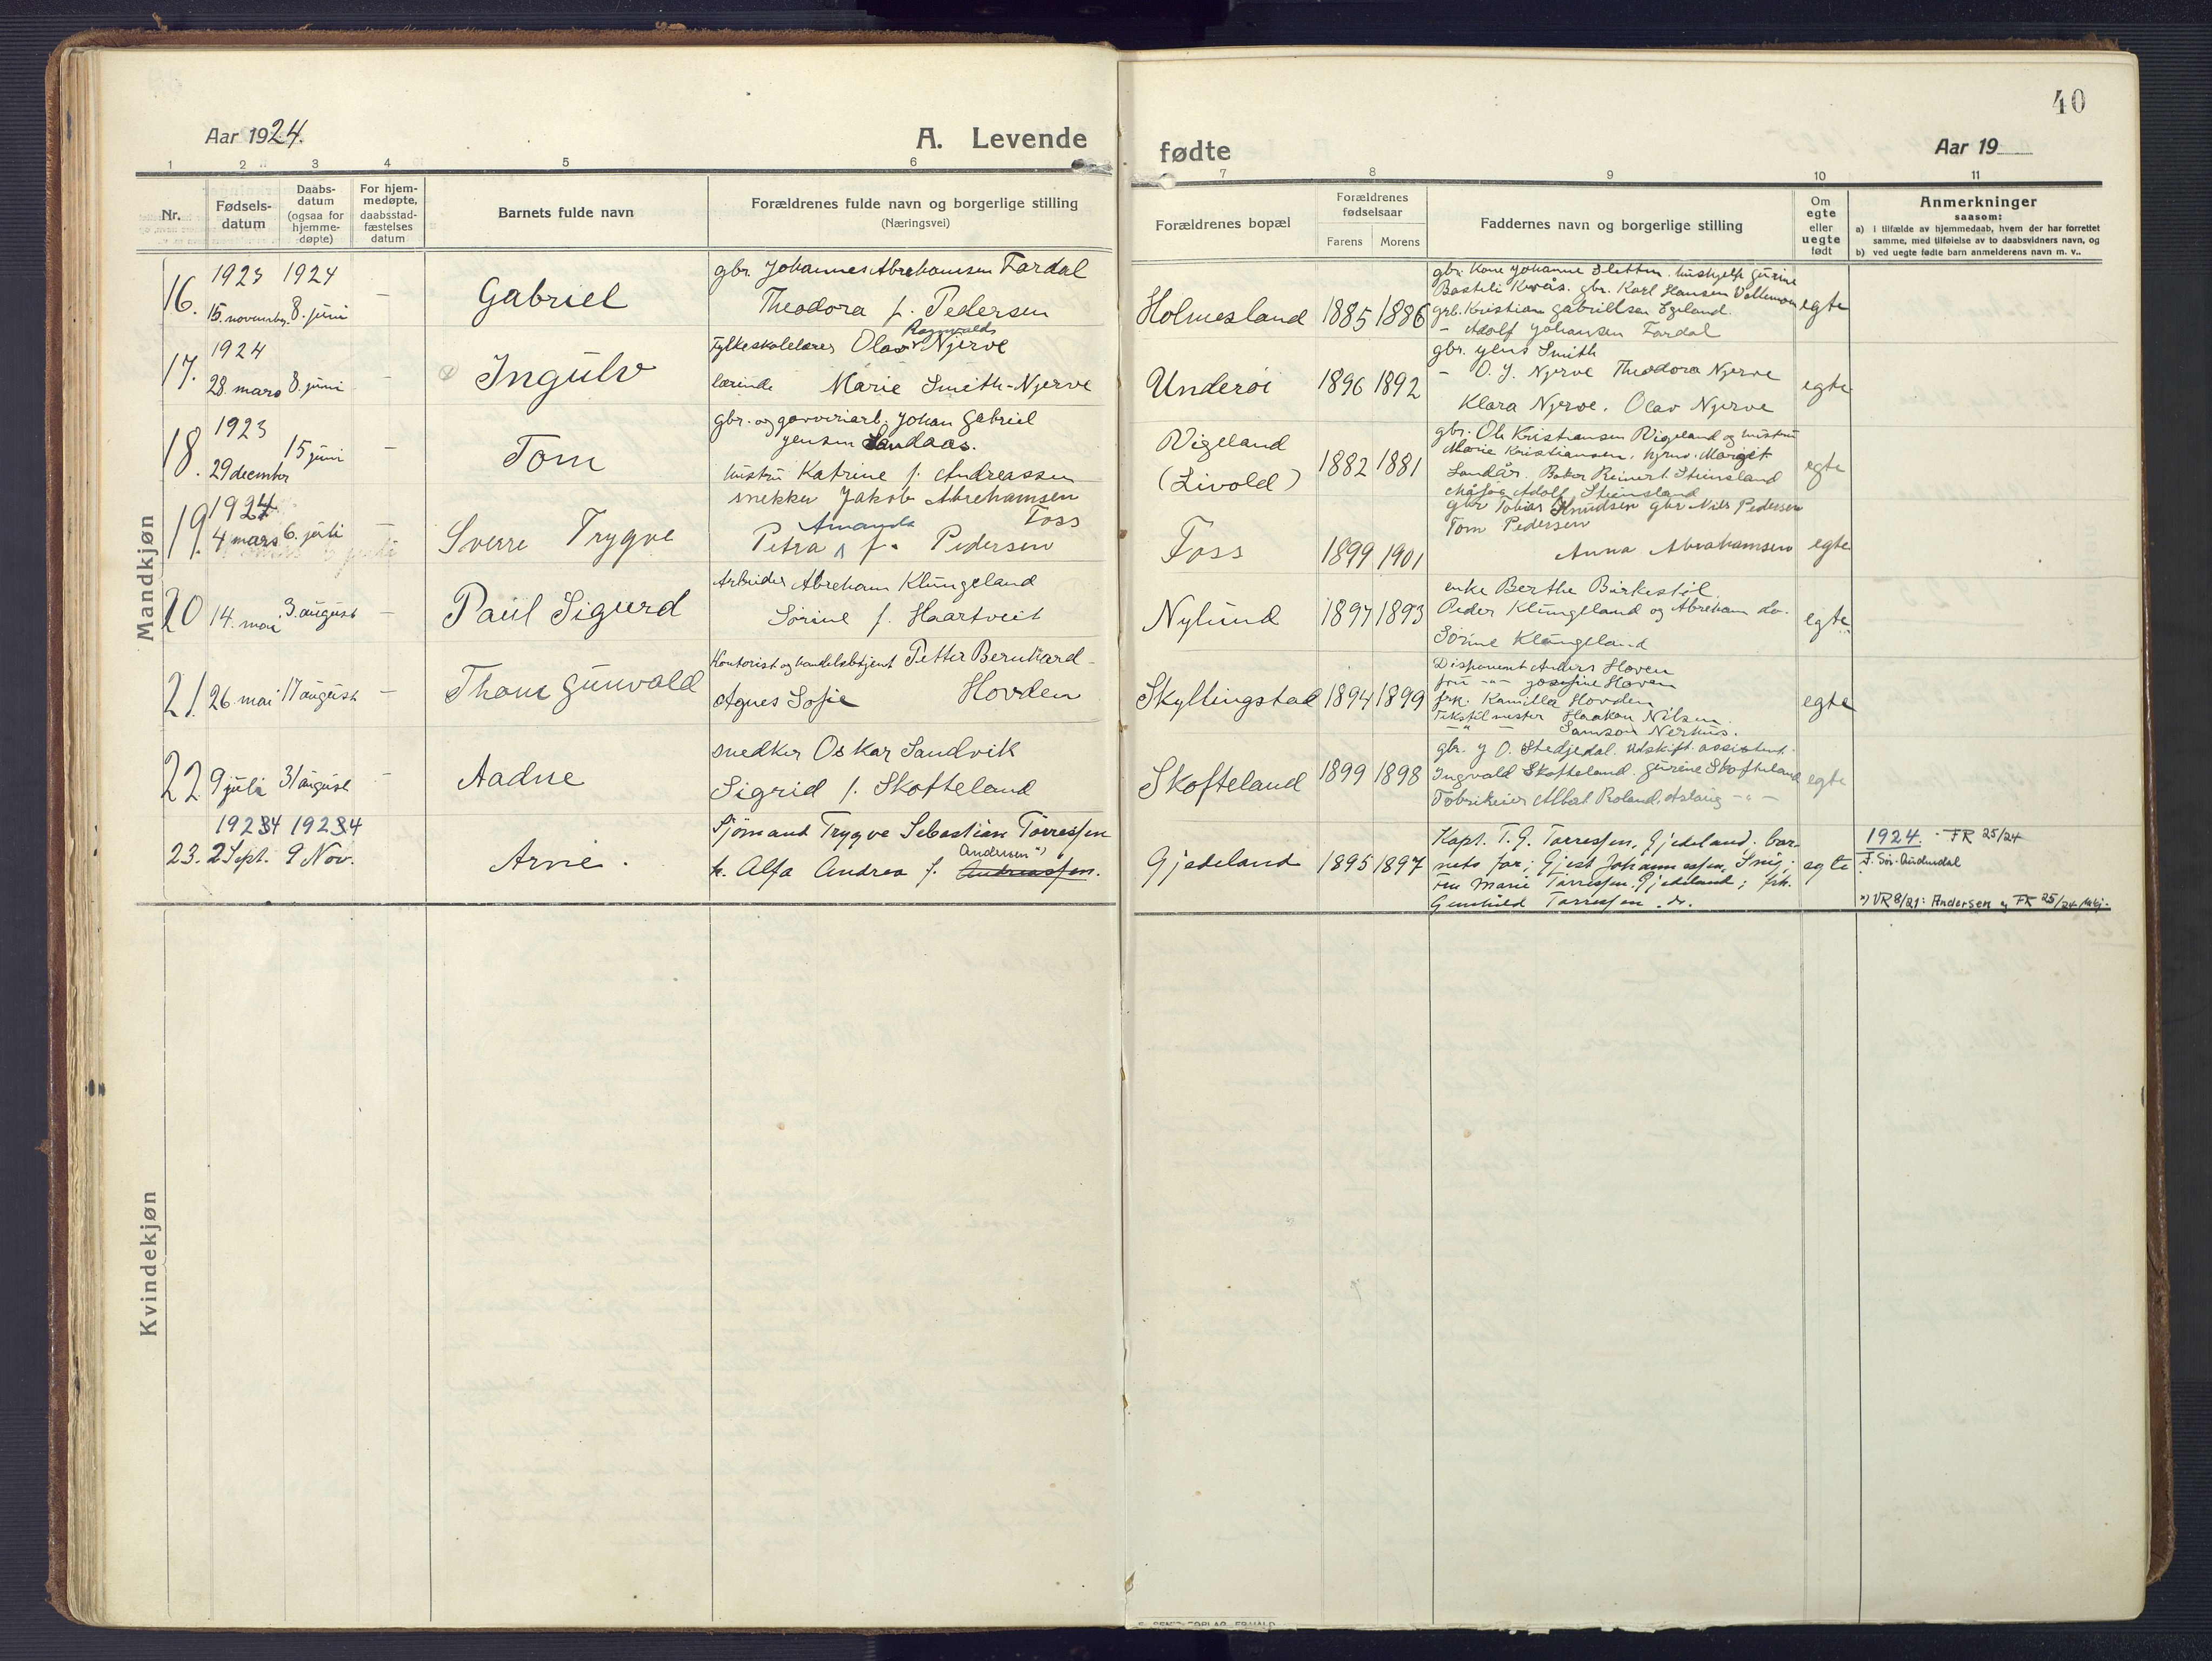 40
Aar 1924.
A. Levende
fødte
Aar 19
1 2 3 4 5 6 7 8 9 10 11
Nr.
Fødsels-
datum
Daabs-
datum
(ogsaa for
hjemme-
døpte)
For hjem-
medøpte,
daabsstad-
fæstelses
datum
Barnets fulde navn
Forældrenes fulde navn og borgerlige stilling
(Næringsvei)
Forældrenes bopæl
Forældrenes
fødselsaar
Farens Morens
Faddernes navn og borgerlige stilling
Om
egte
eller
uegte
født
Anmerkninger
saasom:
a) i tilfælde av hjemmedaab, hvem der har forrettet
samme, med tilføielse av to daabsvidners navn, og
b) ved uegte fødte barn anmelderens navn m. v..
Mandkjøn
16.
1923 1924
15. novembr. 8. juni
-
Gabriel
gbr. Johannes Abrahamsen Fardal
Theodora f. Pedersen
Holmesland
1885 1886
gbr. Kone Johanne Sletten. hushjelp Gurine
Karl Hansen
grb. Kristian Gabrielsen Egeland.
- Adolf Johansen Fardal
egte
17.
1924
28. mars 8. juni
-
Ingulv
Fylkeskolelærer Olav Ragnvalds Njerve
lærinde Marie Smith-Njerve
Underøi
1896 1892
gbr. Jens Smith
- O. J. Njerve Theodora Njerve
Klara Njerve. Olav Njerve
egte
18.
1923
29 decembr 15 juni
-
Tom
gbr. og garveriarb. Johan Gabriel
Jensen Sandaas.
hustru Katrine f. Andreassen
Vigeland
(Livold)
1882 1881
gbr. Ole Kristiansen Vigeland og hustru
Marie Kristiansen. Margit
Sandås. Baker Reinert Steinsland
Adolf Steinsland
egte
19.
1924
4 mars 6. juli
-
Sverre Trygve
snekker Jakob Abrehamsen
Foss
Petra Amanda f. Pedersen
Foss
1899 1901
gbr Tobias Knudsen gbr Nils Pedersen
Tom Pedersen
Anna Abrahamsen
egte
20
14. mai 3. august
-
Paul Sigurd
Arbeider Abreham Klungeland
Sorine f. Haartveit
Nylund
1897 1893
enke Berthe Birkestøl.
Peder Klungeland og Abreham do.
Sorine Klungeland
egte
21.
26. mai 17 august
-
Thom Gunvald
Kontorist og handelsbetjent Petter Bernhard
Agnes Sofie Hovden
Skyllingstad
1894 1899
Disponent Anders Hoven
fru -"- Josefine Hoven
frk. Kamilla Hovden
Tekstilmester Haakon Nilsen.
-"- Samson Nerhus.
egte
22.
9 juli 31 august
-
Aadne
snedker Oskar Sandvik
Sigrid f. Skofteland
Skofteland
1899 1898
gbr. J O. Stedjedal. Utskift. assistent.
Ingvald Skofteland. Gurine Skofteland
Fabrikeier Albert Roland. Aslaug -"-
egte
23.
19234 19234
2 Sept. 9 Nov.
Arne.
Sjømand Trygve Sebastian Tørressen
h. Alfa Andrea f. Andreassen. Andersen *)
Gjedeland
1895 1897
Kapt. T. G. Tørressen, Gjedeland; bar-
nets far; Gjest Johannessen, Snig;
Fru Marie Tørressen, Gjedeland; frk.
Gunhild Tørressen. ds.
egte
1924. - FR 25/24
F. Sør-Audnedal
*) VR 8/21: Andersen og FR 25/24
Kvindekjøn